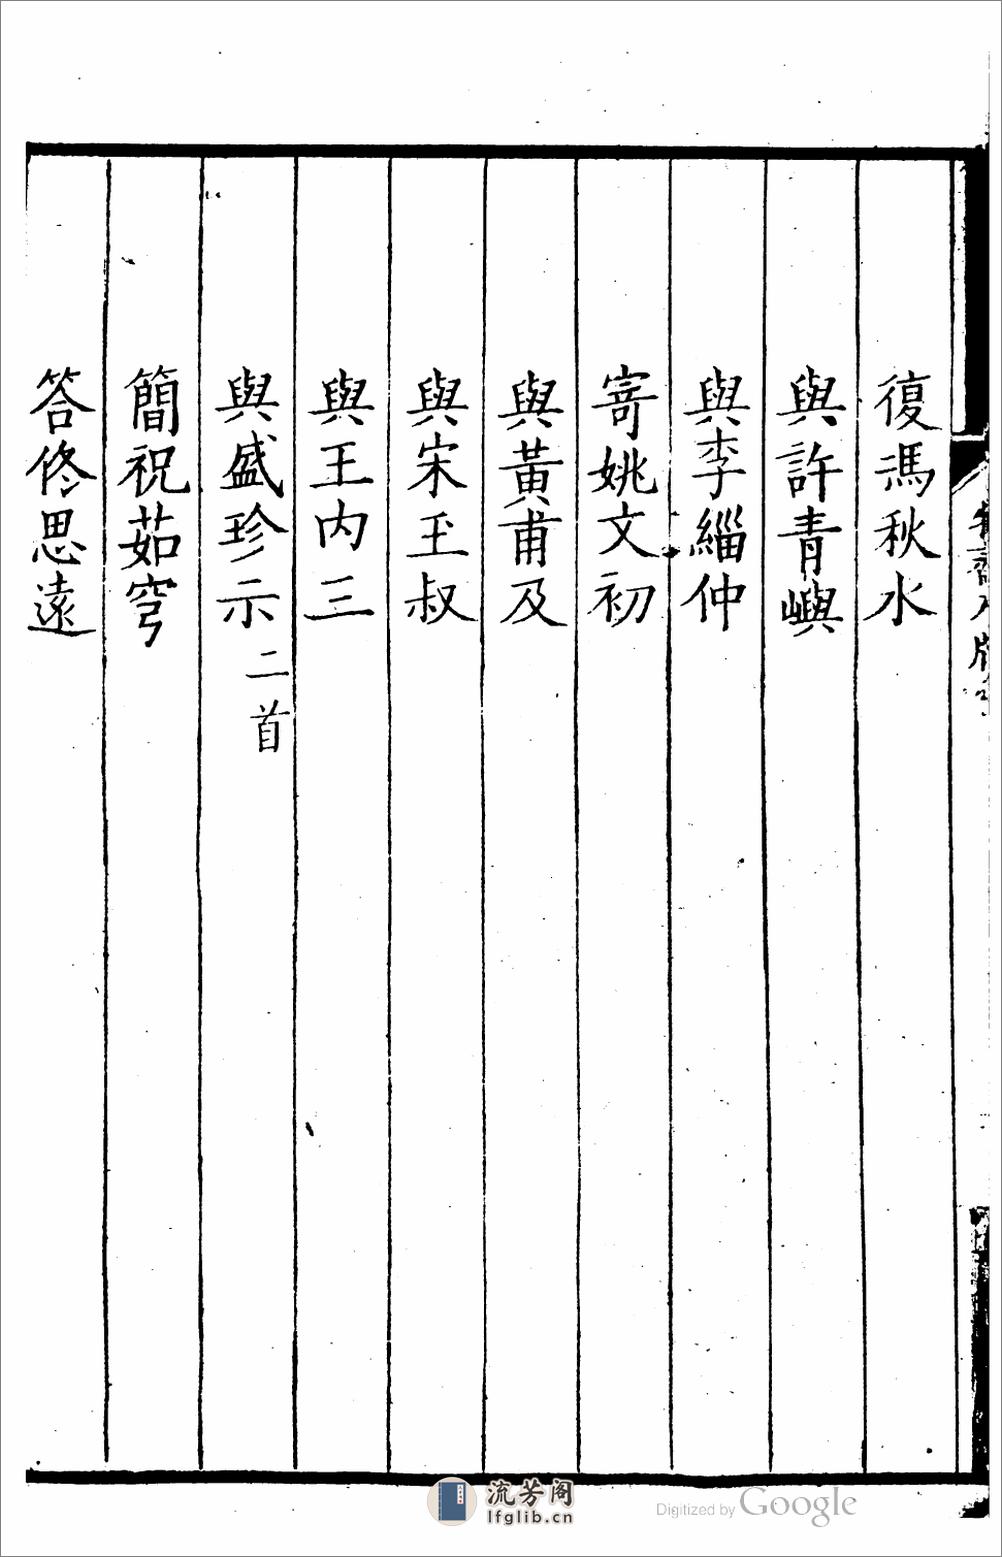 復馮秋水
與許青嶼
與李緇仲
寄姚文初
與黃甫及
與宋玉叔
與王內三
與盛珍示二首
簡祝茹穹
答佟思遠
流芳阁
lfglib.cn
Digitized by Google